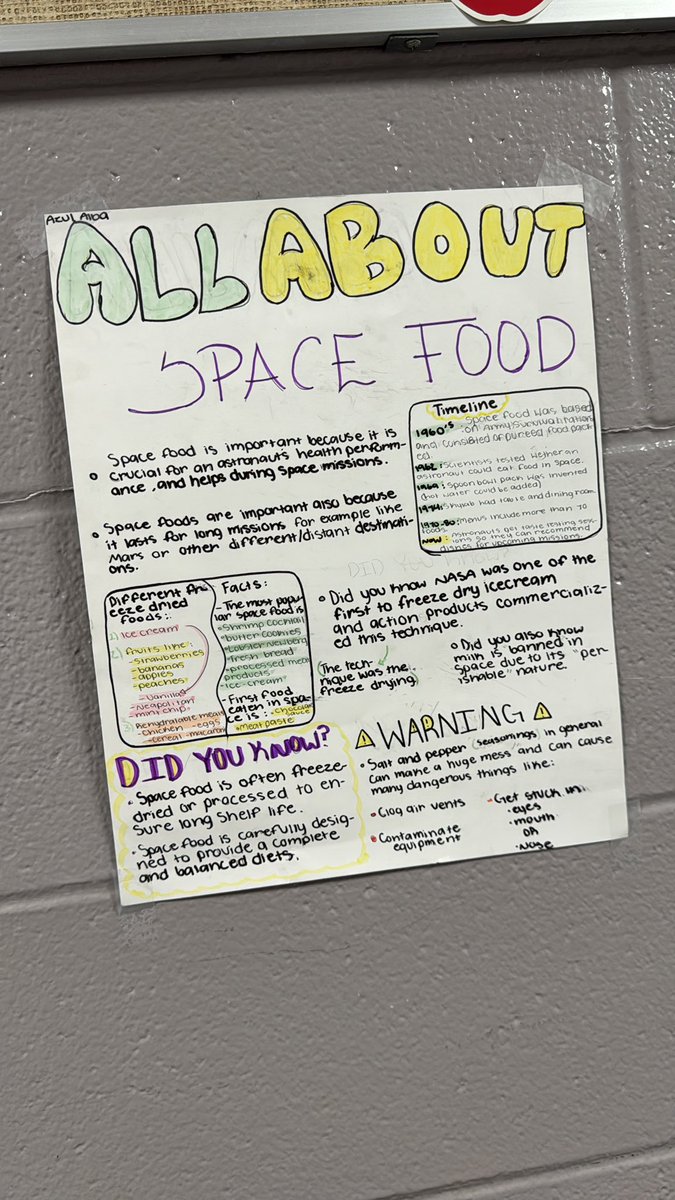 Azul Alba
ALL ABOUT
SPACE FOOD
Space food is important because it is
crucial for an astronaut's health perform-
ance, and helps during space missions.
Space foods are important also because
it lasts for long missions for example like
Mars or other different/distant destinati-
ons.
Timeline
1960's: Space food was based
on Army survival rations
and consisted of pureed food pack
ed.
1962: Scientists tested wether an
astronaut could eat food in space.
1969: Spoon bowl pack was invented
(hot water could be added)
1974: Skylab had table and dining room
menus include more than 70
foods.
Now: Astronauts get taste testing ses-
sions so they can recommend
dishes for upcoming missions.
DID YOU KNOW
Different Fr
eeze dried
foods:
1) Ice cream
2) fruits like:
-strawberries
-bananas
-apples
-peaches
-Vanilla
-Neapolitan
-mint chip
3) Rehydratable meals
Chicken -eggs
-cereal -macaroni
Facts:
-The most popu
lar space food is
Shrimp cocktail
butter cookies
Lobster Newberg
fresh bread
processed meat
products
Ice-cream
-First food
eaten in spa-
ce is: Chocolate
sauce
Meat paste
Did you know NASA was one of the
first to freeze dry icecream
and action products commercializ-
ed this technique.
(The tech-
nique was the
freeze drying)
Did you also know
milk is banned in
space due to its "per-
ishable" nature.
DID YOU KNOW?
Space food is often freeze-
dried or processed to en-
sure long shelf life.
Space food is carefully desig-
ned to provide a complete
and balanced diets.
WARNING
Salt and pepper (seasonings) in general
can make a huge mess and can cause
many dangerous things like:
Clog air vents
Contaminate
equipment
Get stuck in:
eyes
mouth
OR
Nose